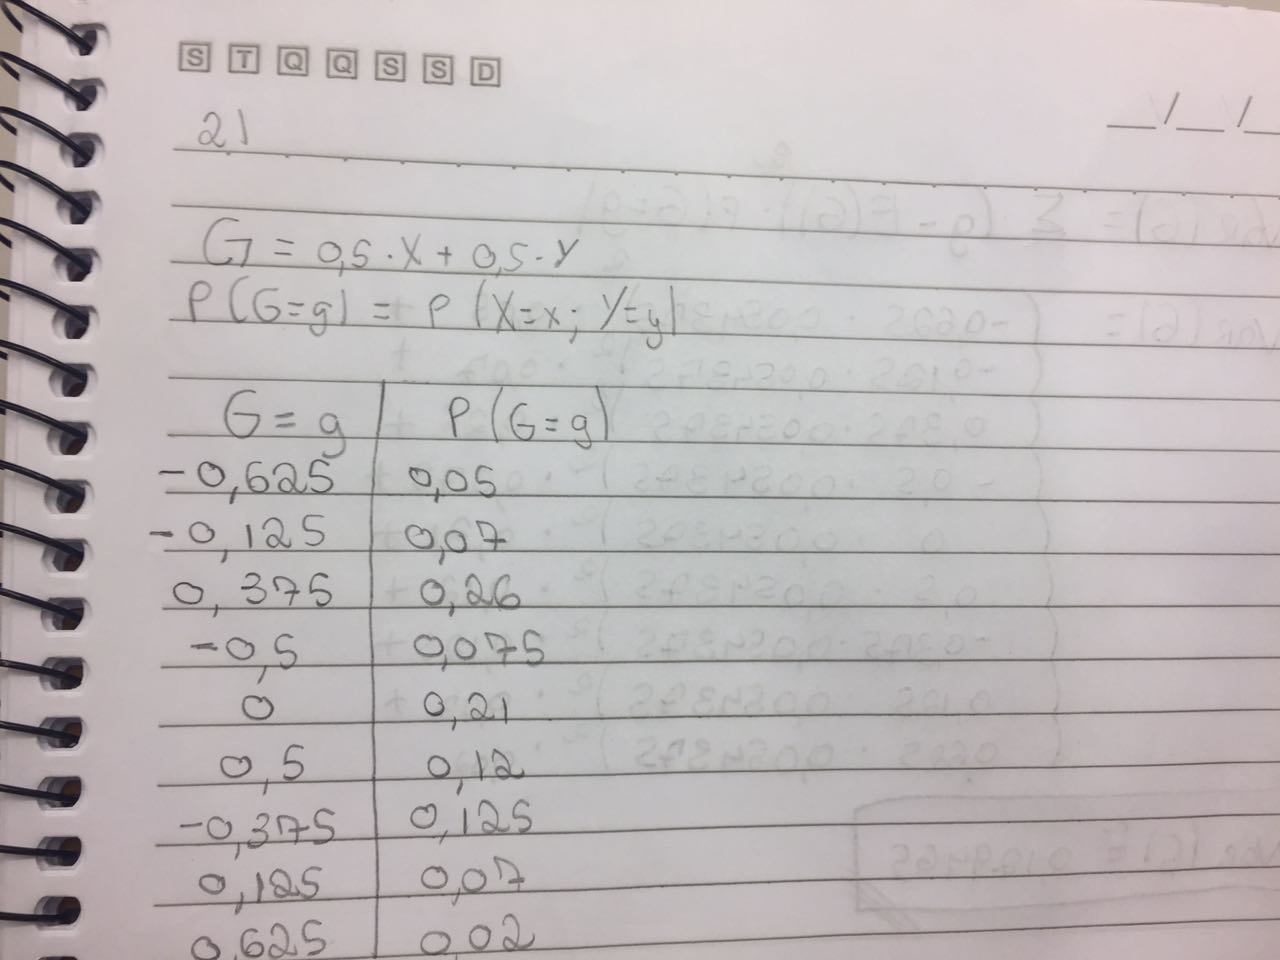 S T Q Q S S D
__/__/__
21
G = 0,5 · X + 0,5 · Y
P(G=g) = P(X=x; Y=y)
G = g P(G=g)
-0,625 0,05
-0,125 0,07
0,375 0,26
-0,5 0,075
0 0,21
0,5 0,12
-0,375 0,125
0,125 0,07
0,625 0,02